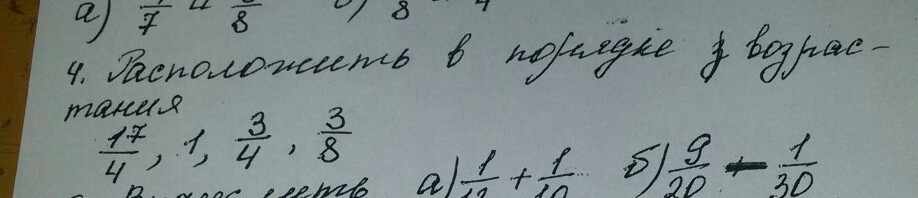 а)
4. Расположить в порядке возрас-
тания
17/4, 1, 3/4, 3/8
а) б) 9/20 - 1/30